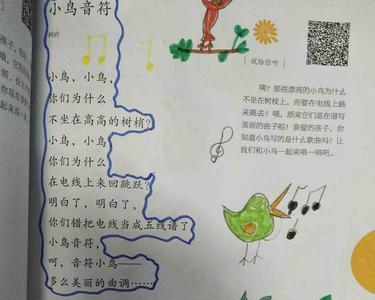 小鸟音符
小鸟，小鸟，
你们为什么
不坐在高高的树梢？
小鸟，小鸟
你们为什么
在电线上来回跳跃？
明白了，明白了，
你们错把电线当成五线谱了
小鸟音符，
呵，音符小鸟——
多么美丽的曲调……
［说给你听］
咦？那些漂亮的小鸟为什么
不坐在树枝上，而要在电线上跳
来跳去？哦，原来它们是在谱写
美丽的曲子呢！亲爱的孩子，你
知道小鸟写的是什么歌曲吗？让
我们和小鸟一起来唱一唱吧。